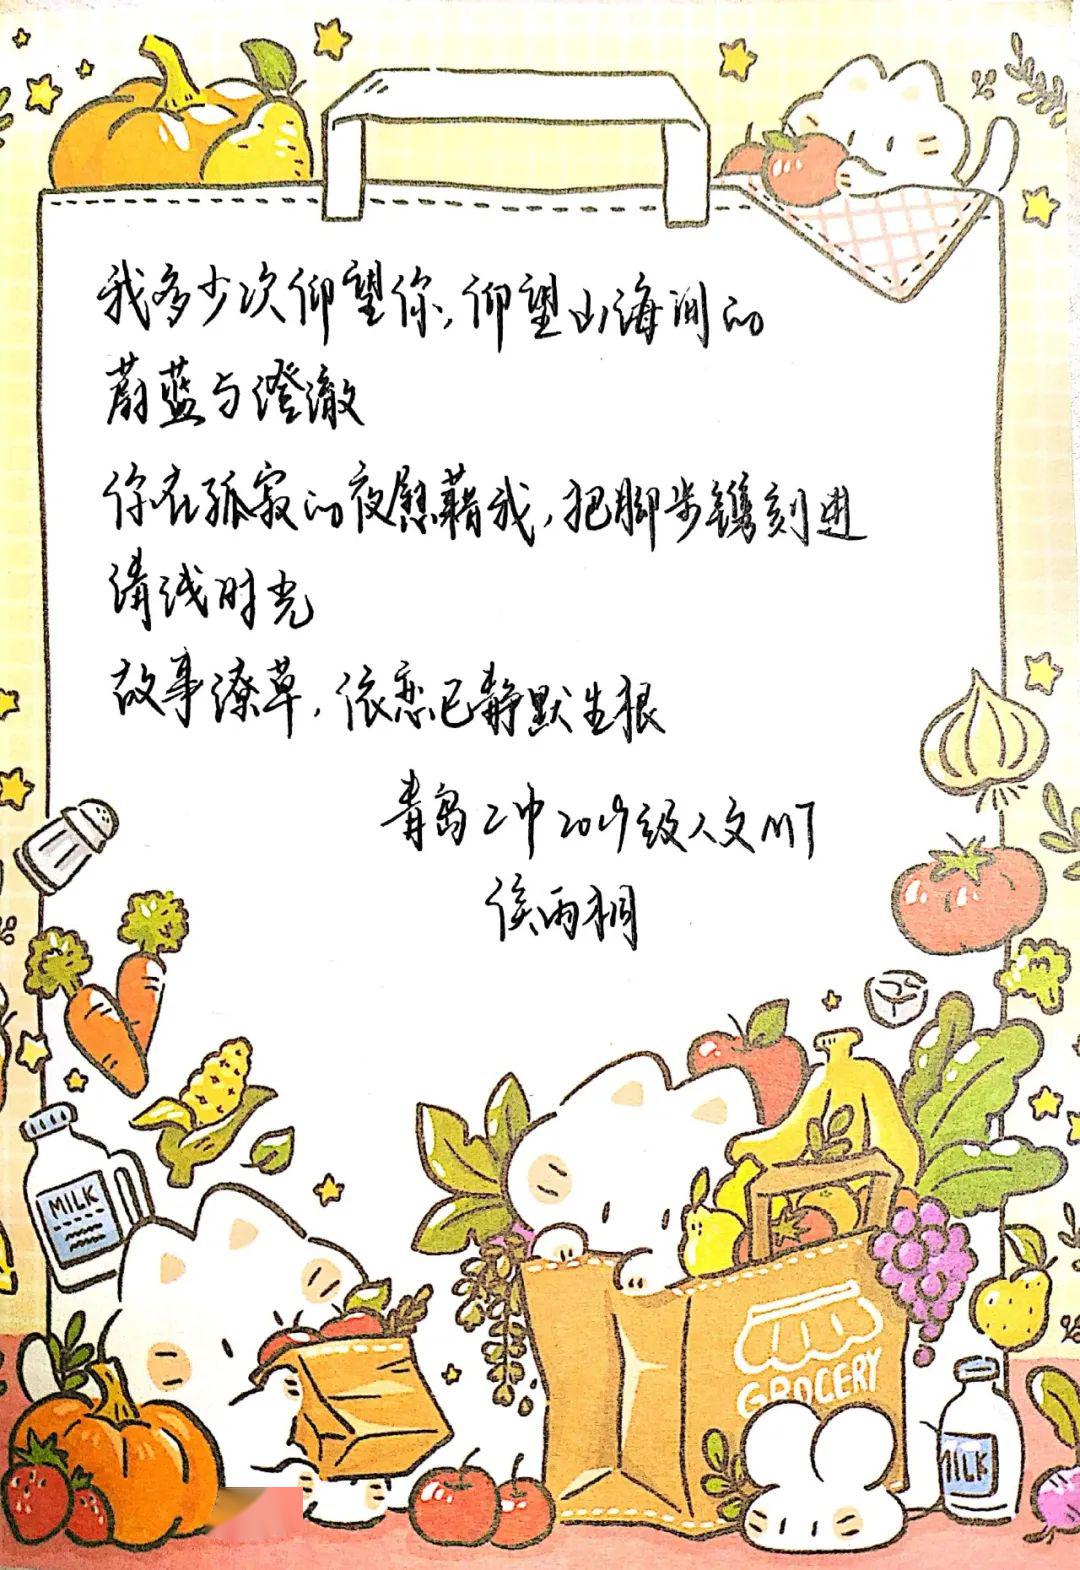 我多少次仰望你，仰望山海间的
蔚蓝与澄澈
你在孤寂的夜慰藉我，把脚步镌刻进
清浅时光
故事潦草，依恋已静默生根
青岛二中2019级人文MT
侯雨桐
MILK
GROCERY
MILK